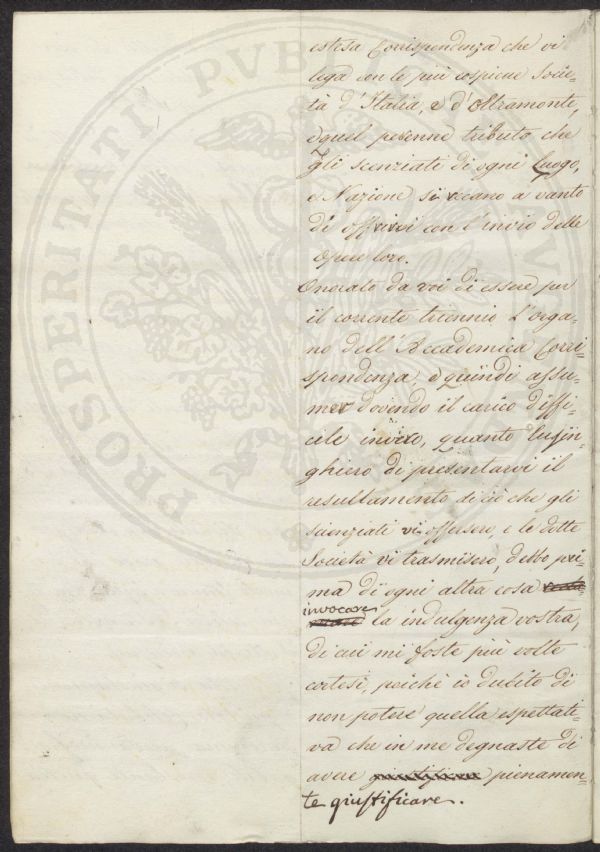 estesa Corrispondenza che vi
lega con le più cospicue Socie=
tà d'Italia, e d'Oltramonte,
e quel perenne tributo che
gli scenziati di ogni Luogo,
e Nazione si recano a vanto
di offrirvi con l'invio delle
Opere loro.
Onorato da voi di essere per
il corrente triennio l'orga=
no dell'Accademica Corri=
spondenza, e quindi assu=
mer dovendo il carico diffi=
cile invero, quanto lusin=
ghiero di presentarvi il
resultamento di ciò che gli
scienziati vi offersero, e le dotte
Società vi trasmisero, debbo pri=
ma di ogni altra cosa
invocare la indulgenza vostra,
di cui mi foste più volte
cortesi, poichè io dubito di
non potere quella espettati=
va che in me degnaste di
avere pienamen=
te giustificare.
PROSPERITATI PVBLICAE